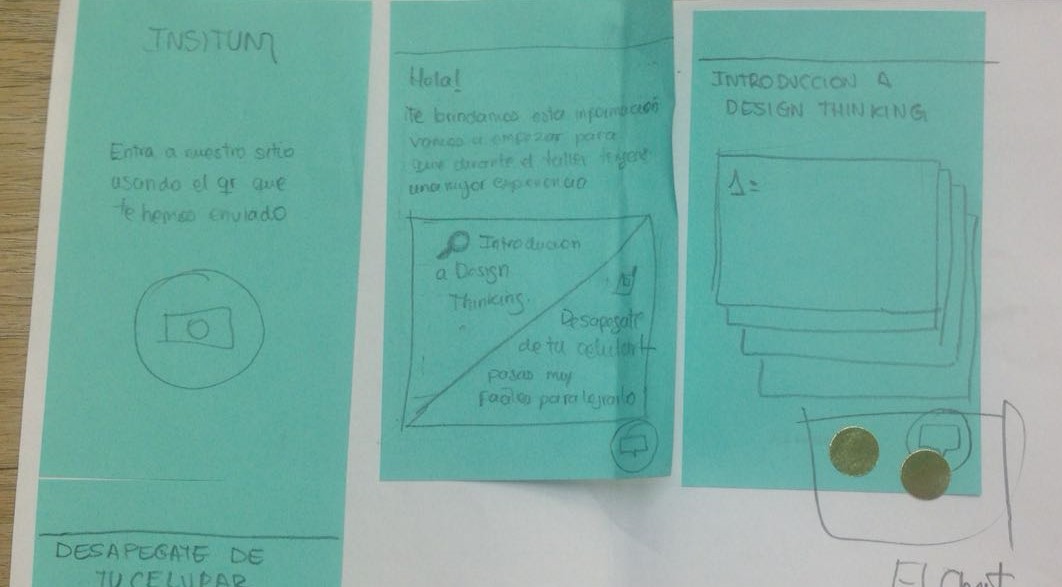 INSITUM
Entra a nuestro sitio
usando el qr que
te hemos enviado
DESAPEGATE DE
TU CELULAR
Hola!
Te brindamos esta información
vamos a empezar para
que durante el taller
una mejor experiencia
Introducion
a Design
Thinking.
Desapegate
de tu celular
pasos muy
Faciles para lograrlo!
INTRODUCCION A
DESIGN THINKING
1=
El Chat